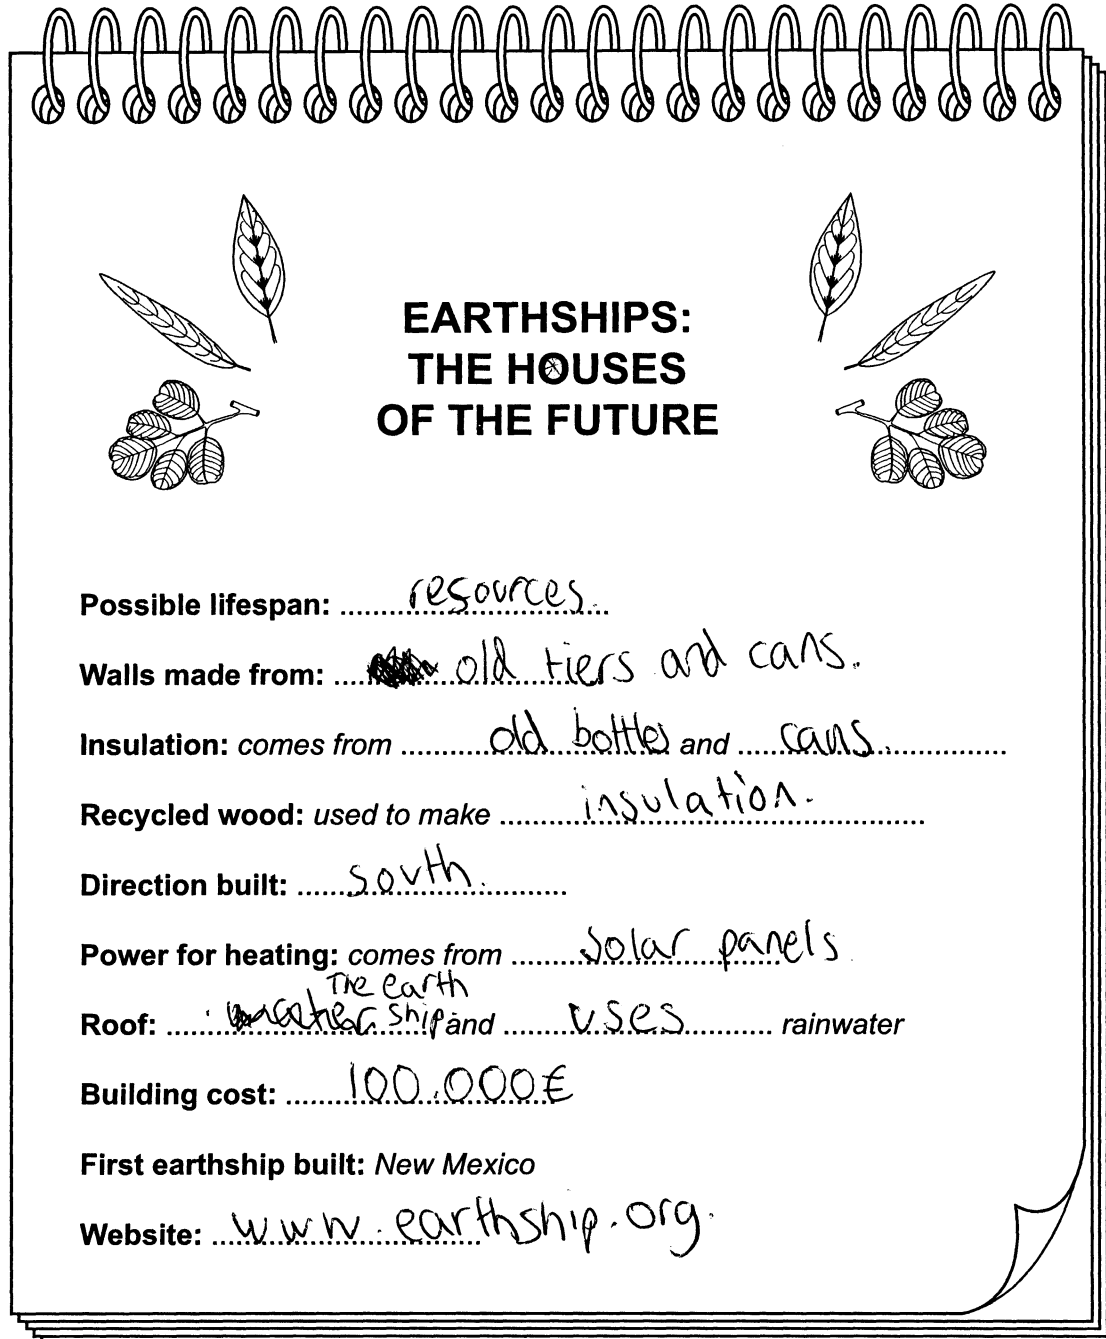 EARTHSHIPS:
THE HOUSES
OF THE FUTURE
Possible lifespan: resources.
Walls made from: old tiers and cans.
Insulation: comes from old bottles and cans.
Recycled wood: used to make insulation.
Direction built: south.
Power for heating: comes from solar panels
The earth
Roof: ship and uses rainwater
Building cost: 100.000€
First earthship built: New Mexico
Website: www.earthship.org.